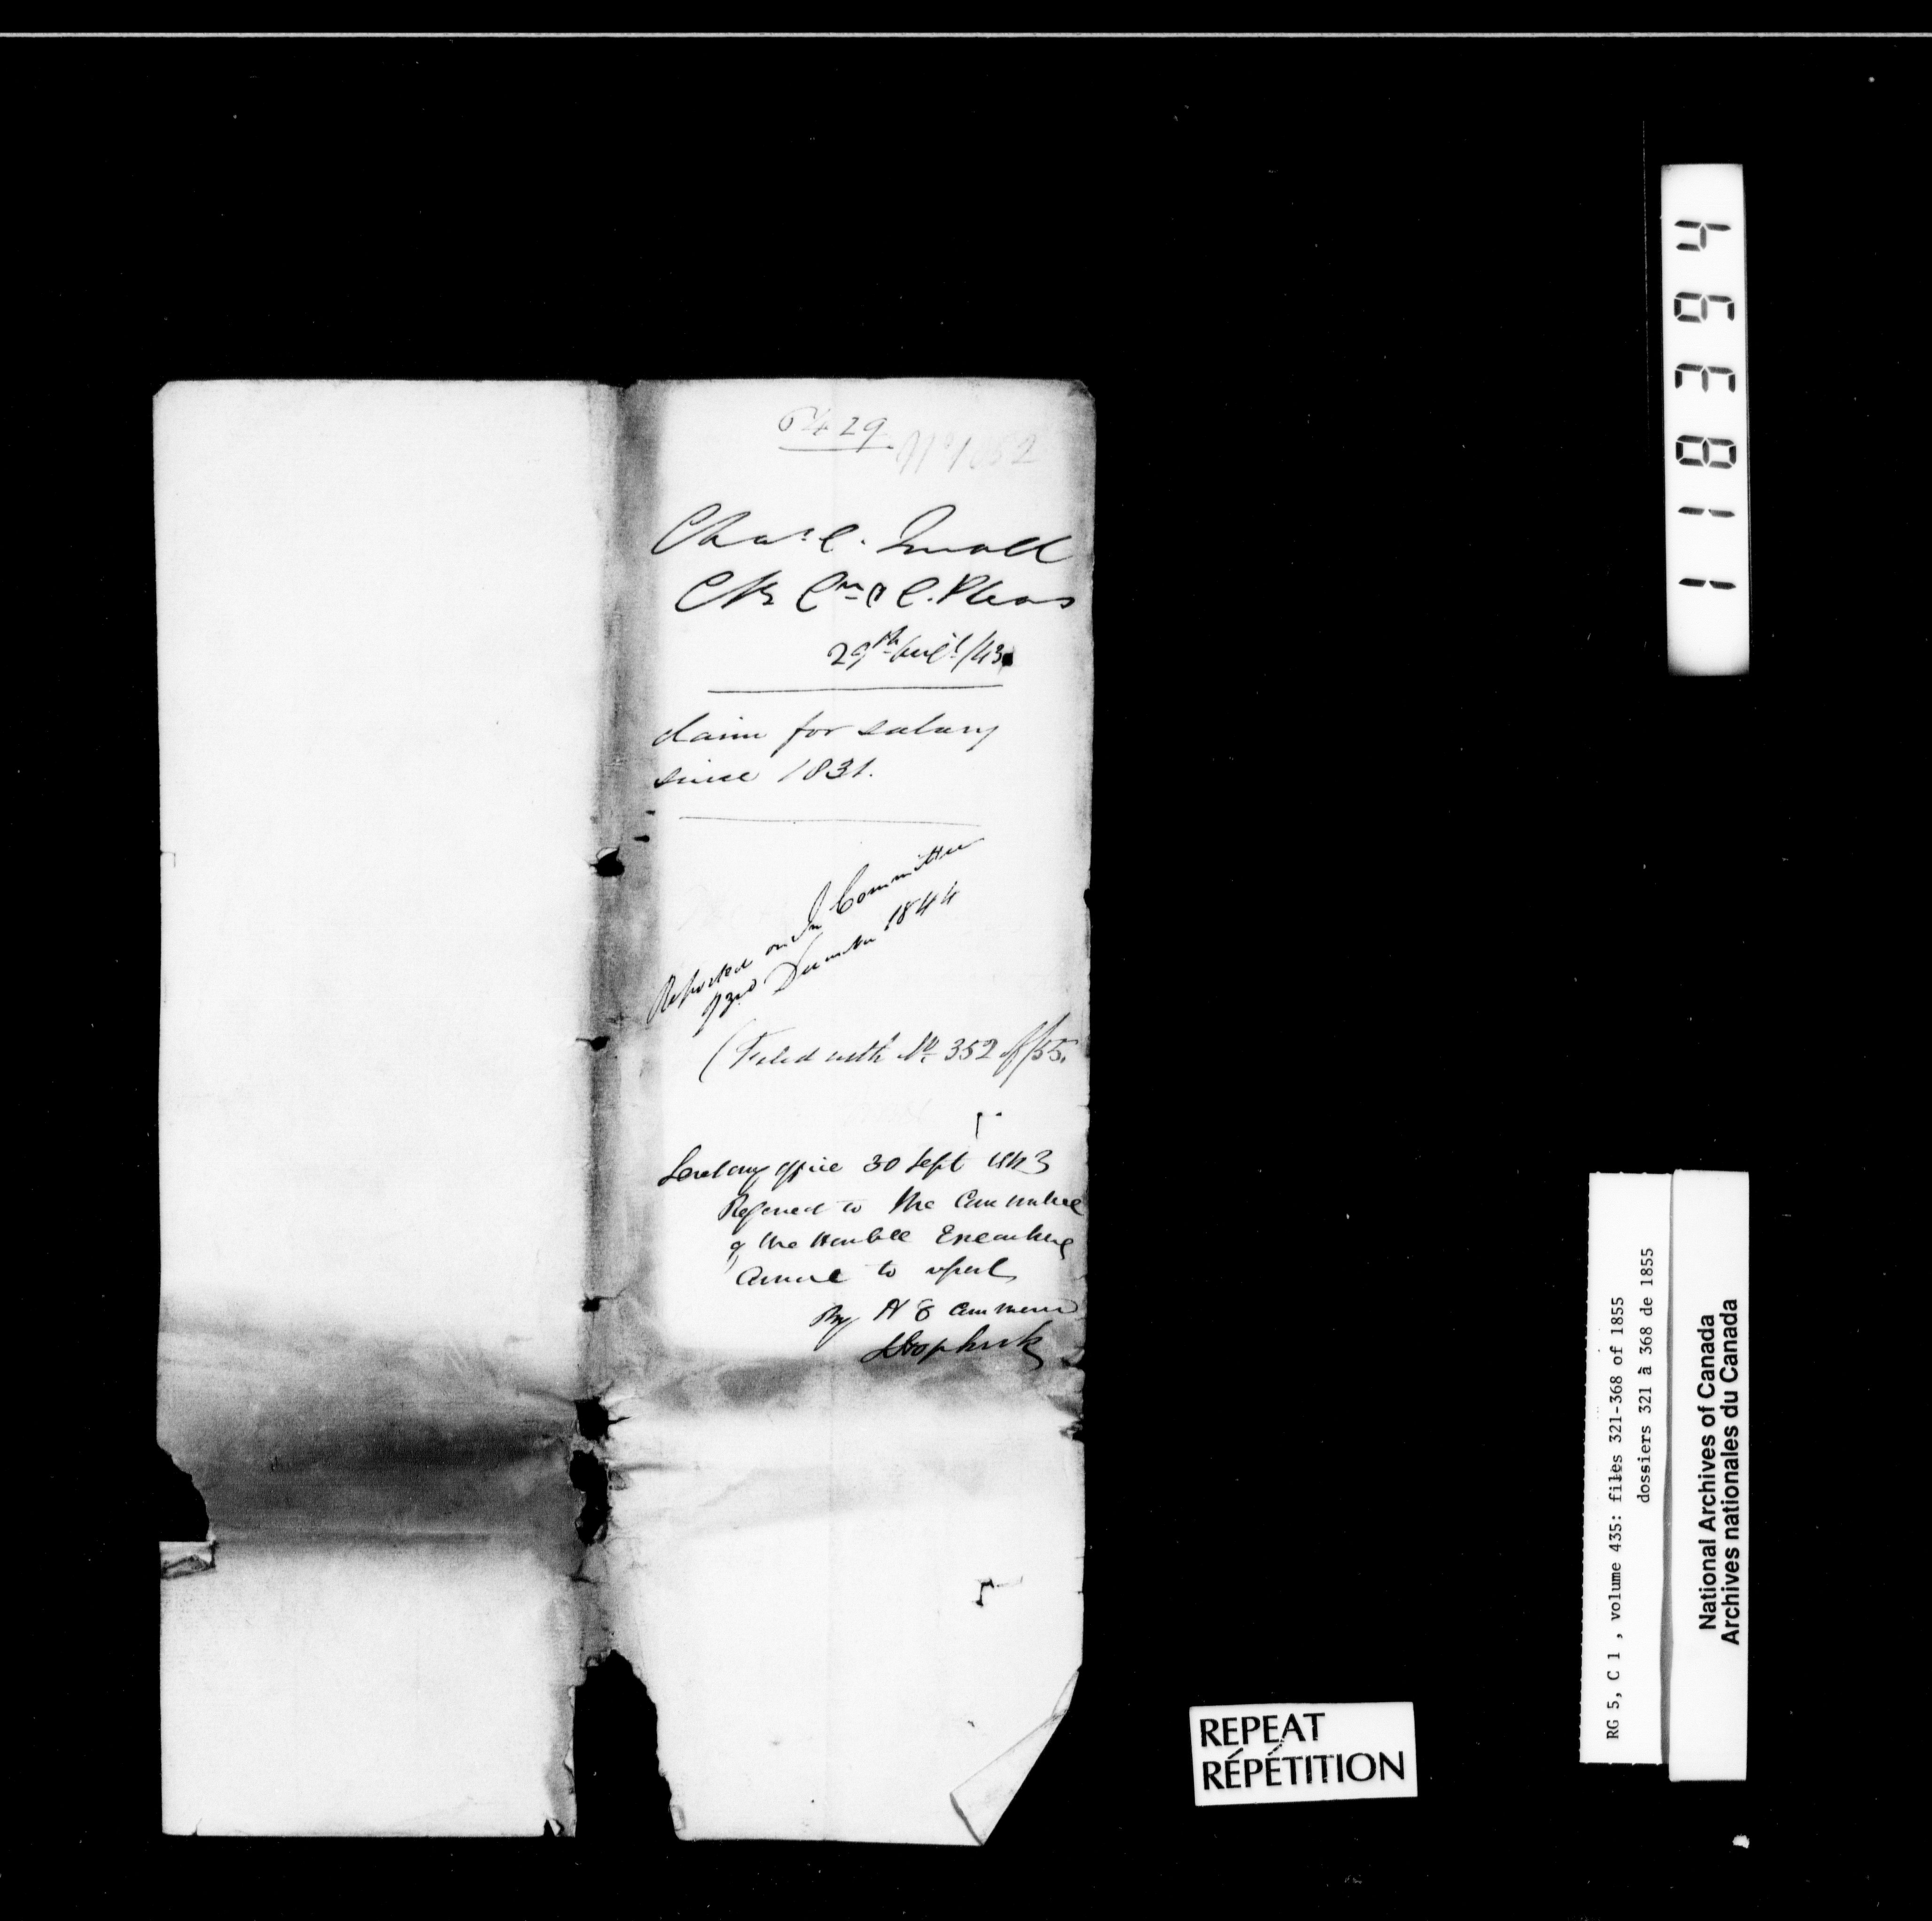 6429
No 1052
Chas. C. Small
Clk Crn & C. Pleas
29th Augt /43
Claim for salary
since 1831.
Reported on In Committee
23rd December 1844
(Filed with No. 352 of/55.
Secretary office 30 Sept 1843
Referred to the Committee
of the Honble Executive
Council to report
By H E Command
SBHopkirk
118364
RG 5, C 1 , volume 435: files 321-368 of 1855
dossiers 321 à 368 de 1855
National Archives of Canada
Archives nationales du Canada
REPEAT
RÉPÉTITION